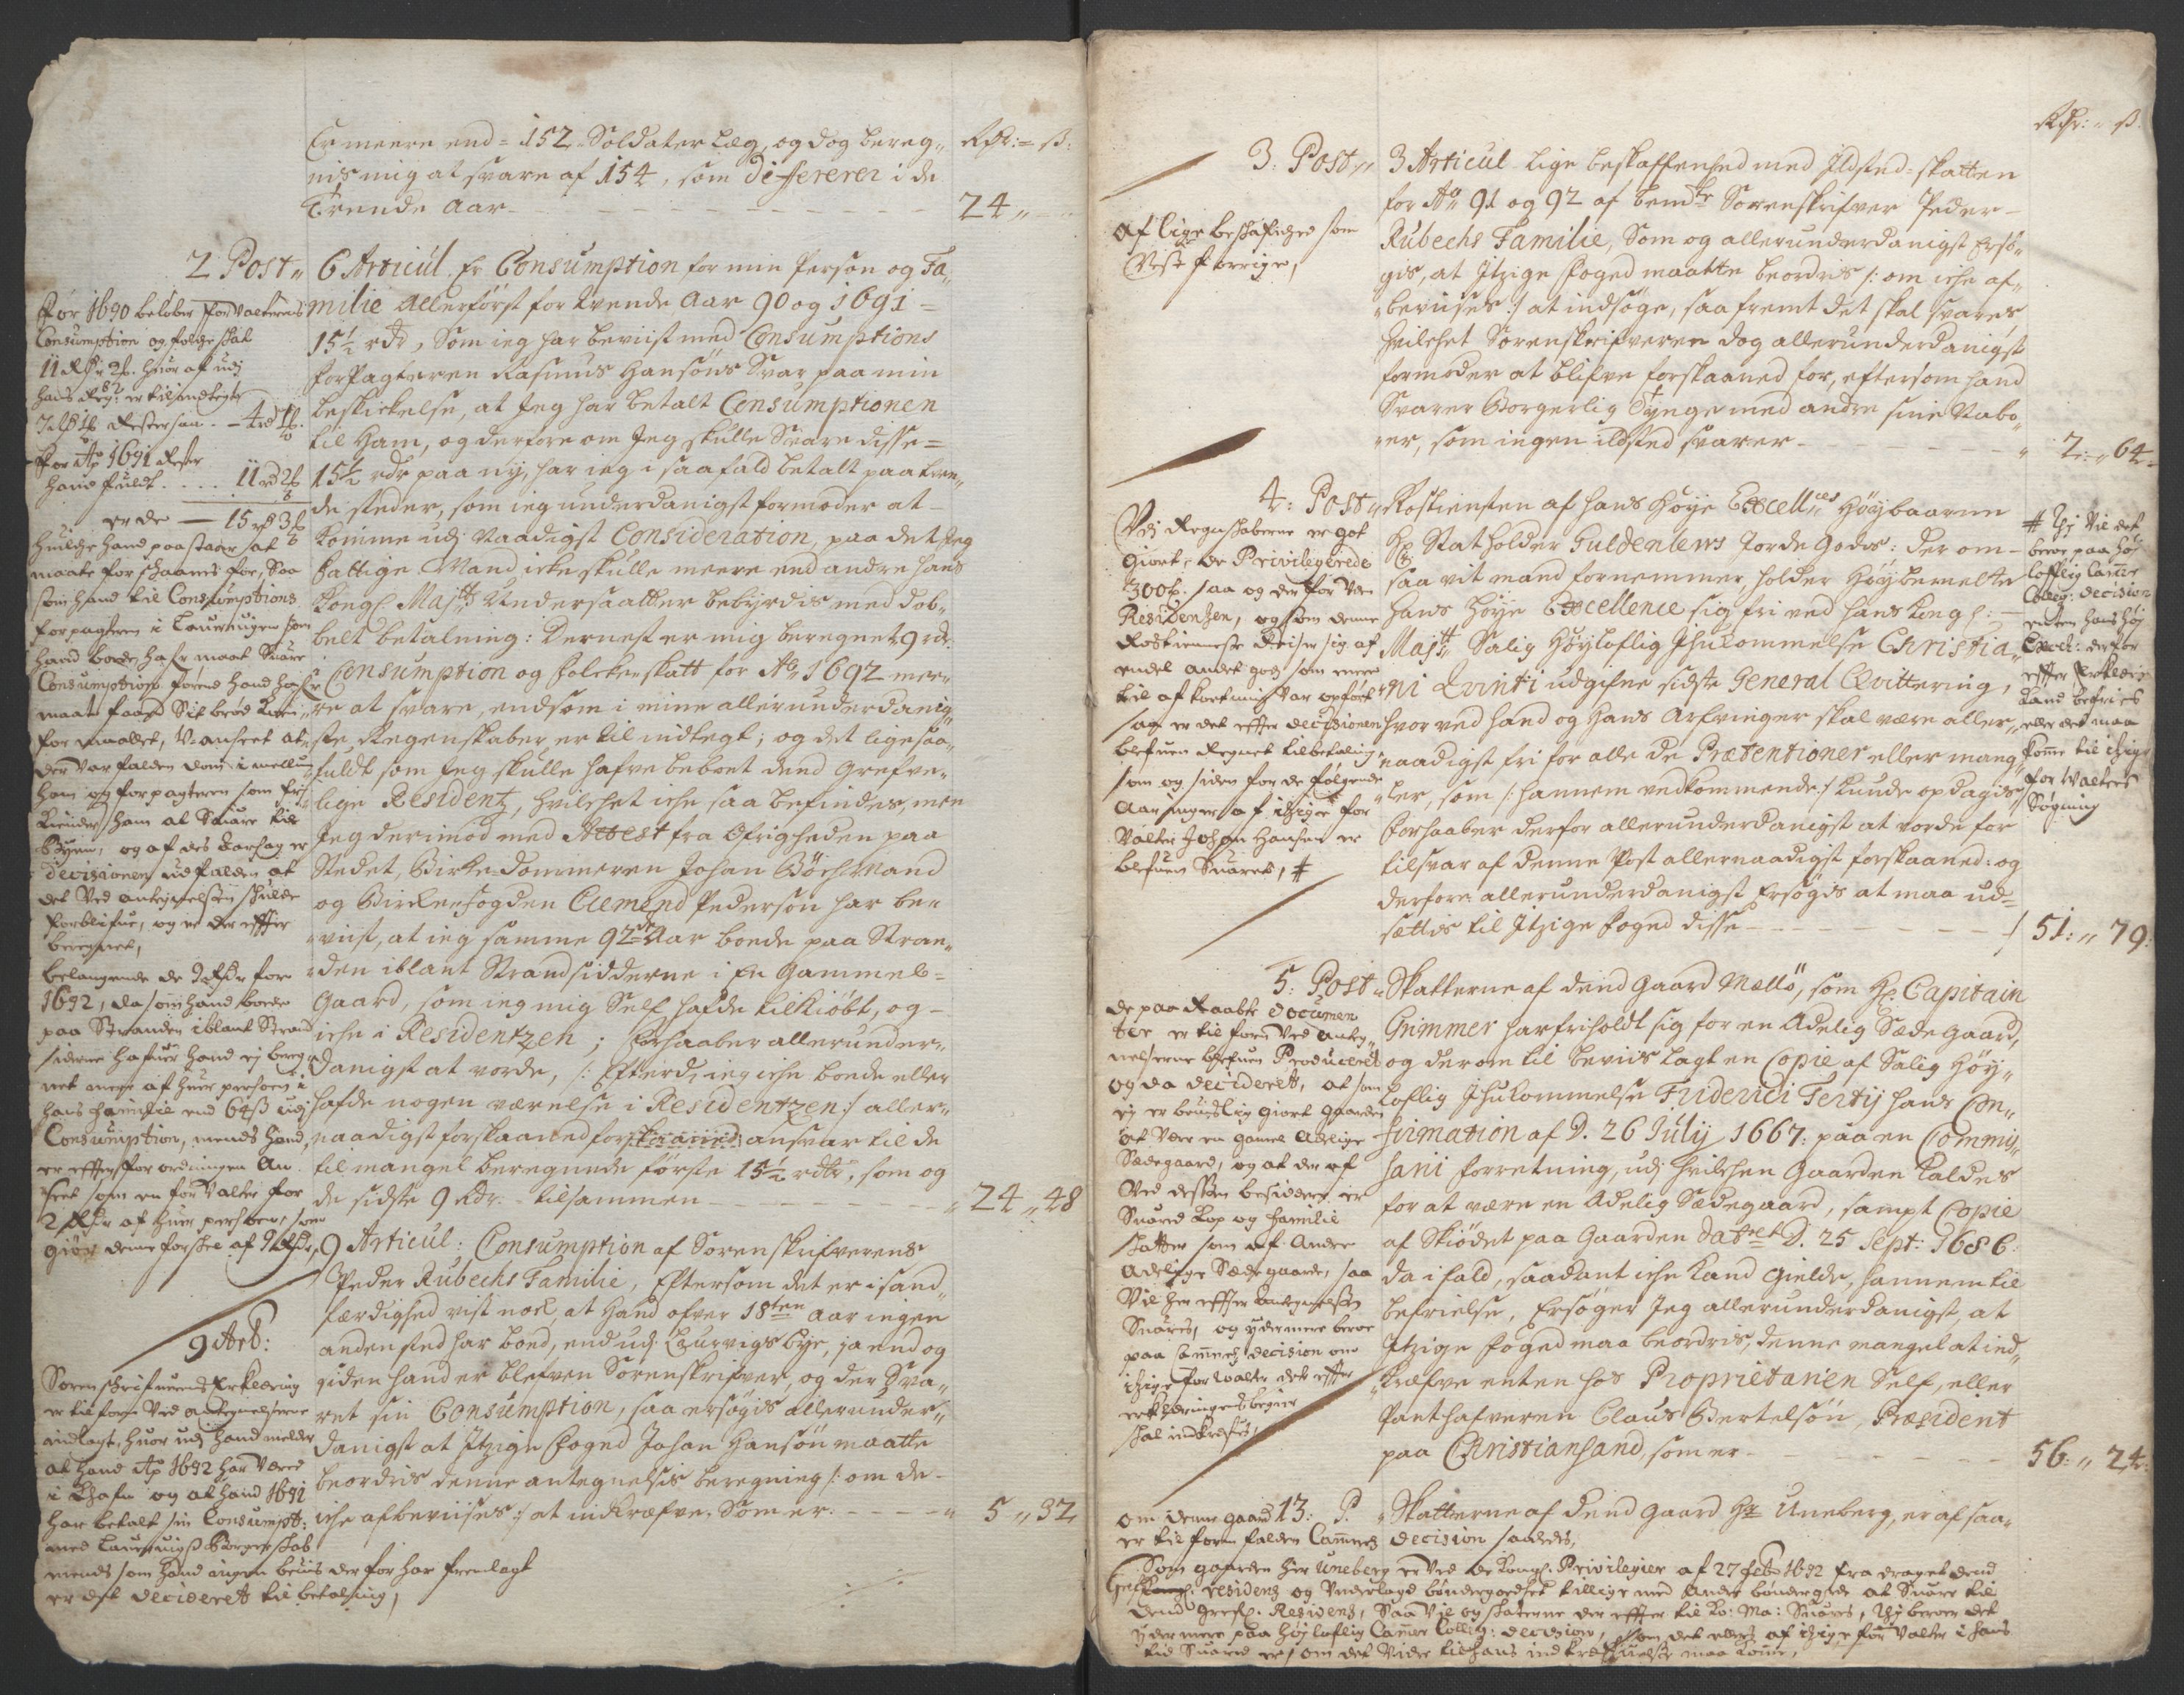 Er meere end = 152 Soldater læg, og dog bereg„
nis mig at svare af 154, som differerer i de
Trende Aar
Rdr: = ß:
24 „
2 Post „ 6 Articul. Er Consumption for min Person og Fa„
milie Allerførst for tvende Aar 90 og 1691 =
15½ rdr, Som ieg har beviist med Consumptions
forPagteren Rasmus Hansöns Svar paa min
beskickelse, at Jeg har betalt Consumptionen
til Ham, og derfore om Jeg skulle Svare disse =
15½ rdr paa ny, har ieg i saafald betalt paa tven„
de steder, som ieg underdanigst formoder at
komme udj Naadigst Consideration, paa det Jeg
fattige Mand icke skulle meere end andre hans
Kongl Majts Undersaatter bebyrdis med dob„
belt betalning: Dernest er mig beregnet 9 rdr.
Consumption og folcke skatt for Ao 1692 mee„
re at svare, end som i mine allerunderdanig„
ste Regenskaber er til indtegt; og det ligesaa„
fuldt som Jeg skulle hafve beboet dend Grefve„
lige Residentz, hvilchet iche saa befindes, men
Jeg derimod med Attest fra Øfrigheden paa
Stedet, Birke-Dommeren Johan Böchmand
og Birckefogden Clemend Pedersøn har be„
viist, at ieg samme 92de Aar boede paa Stran„
den iblant Strandsidderne i En Gammel =
Gaard, som ieg mig Self hafde tilkiöbt, og
iche i Residentzen; Forhaaber allerunder„
danigst at vorde, /: Efterdj ieg iche boede eller
hafde nogen værelse i Residentzen :/ aller„
naadigst forskaaned for ansvar til de
til mangel beregnede første 15½ rdr, som og
de sidste 9 Rdr. tilsammen
24 „ 48
9 Articul: Consumption af Sorenskrifverens
Peder Rubechs Familie, Eftersom det er i sand„
færdighed vist nock, at Hand ofver 18ten Aar ingen
anden sted har boed, end udj Laurvigs Bye, ja end og
siden hand er blefven Sorenskrifver, og der Sva„
ret sin Consumption, saa ersøgis allerunder„
danigst at Itzige Foged Johan Hansön maatte
beordris denne antegnelsis beregning /: om de
iche afbeviises :/ at indkræfve, Som er.
5 „ 32
For 1690 beløber forvalterens
Consumption og folcke skat
11 Rdr 2 ß. huor af udj
hans Regn: er til indtegte
7 Rdr Rester saa 4 rd
For Ao 1691 Rester
hand fuldt 11 rd 2
er de — 15 rd 3
huilcke hand paastaar at
maate forskaanes for, Saa
som hand til Consumptions
forpagteren i Laurvigen som
hand boede
Consumption førend hand hafr
maatt
for
der var falden dom i mellum
ham og forpagteren som
kiender ham at Suare til
Byen, og af des Aarsag er
Decisionen udfalden at
det Ved antegnelsen skulde
forblifue, og er der effter
beregnet,
belangende de 9 Rdr for
1692, da som hand boede
paa Stranden iblant Strand
siderne hafuer hand ej bereg„
net mere af huer persohn i
hans familie end 64 ß udj
Consumption, mens hand
er effter forordningen An„
seet som en forvalter for
2 Rdr af huer persohn, som
giör denne forskel af 9 Rdr,
9 Art:
Sorenskrifuerens Erklæring
er til foren Ved antegnelserne
indlagt, huor udj hand melder
at hand Ao 1692 har Været
i og at hand 1691
har betalt sin Consumpt:
med Laurvigs Borgerskab
mens som hand ingen beuis der for har fremlagt
er det Decideret til betaling,
Rdr: „ ß
3: Post „ 3 Articul lige beskaffenhed med Ildsted = skatten
for Ao 91 og 92 af bemte Sorenskrifver Peder
Rubechs Familie, Som og allerunderdanigst Ersö„
gis, at Itzige Foged maatte beordris /: om iche af„
beviises :/ at indsöge, saafremt det skal svares
hvilchet Sorenskrifveren dog allerunderdanigst
formoder at blifve forskaaned for, eftersom hand
Svarer Borgerlig Tynge med andre sine Nabo„
er, som ingen ildsted svarer
2: „ 64
Af lige beskafenhed som
Neste forrige,
4: Post „ Rostiensten af hans Høye Excellces Höybaarne
Hr Statholder Guldenlews Jorde Godis: Der om
saa vit mand fornemmer, holder Höybemelte
Hans Höye Excellence sig fri ved hans Kongl:
Majts Salig Höyloflig Ihukommelse Christia„
ni Qvinti udgifne sidste General Qvittering,
hvorved hand og Hans Arfvinger skal være aller„
naadigst fri for alle de Prætentioner eller mang„
ler, som /: hannem vedkommende :/ kunde opdagis,
Forhaaber derfor allerunderdanigst at vorde for
tilsvar af denne Post allernaadigst forskaaned: og
derfore allerunderdanigst Ersøgis at maa ud=
sættis til Itzige Foged disse
51: „ 79:
Udj Regnskaberne er got
giort de Privilegerede
300 saa og der for ved
Residenzen, og som denne
Rostieneste reiser sig af
endel andet gods som mere
til afkortning var opført
saa er det effter Decisionen
blefuen Regnet til betaling
som og siden for de følgende
Aaringer af itzige for
Valter Johan Hansen er
blefuen Suaret, #
# Thj Vil det
beroe paa høy
lofflig Camer
Colleg: decision
enten hans høy
Excel: derfor
effter Erklæring
kand befries
eller det maa
kome til itzige
for Walters
Søgning
5: Post „ Skatterne af dend Gaard Mellö, som Hr Capitain
Grimmer har friholdt sig for en Adelig Sæde Gaard,
og derom til beviis lagt en Copie af Salig Höy„
loflig Ihukommelse Friderici Tertij hans Con„
firmation af D. 26 Julij 1667: paa en Commis„
sarii forretning, udj hvilchen Gaarden kaldes
for at være en Adelig Sædegaard, sampt Copie
af Skiödet paa Gaarden Dateret D. 25 Sept: 1686:
Da i fald, saadant iche kand gielde, hannem til
befrielse, Ersøger Jeg allerunderdanigst, at
Itzige foged maa beordris, denne mangel at ind„
kræfve enten hos Proprietarien Self, eller
Panthafveren Claus Bertelsøn, Præsident
paa Christiansand, som er
56: „ 24:
De paa Raabte Documen
ter er til foren Ved anteg„
nelserne blefuen Produceret
og da Decideret, at som
ej er beuislig giort gaarden
at Vere en gamel Adelig
Sædegaard, og at der af
Ved dessen besiddere er
Suared Kop og familie
skatter som af Andre
Adelige Sædegaarde, saa
Vil her effter antegnelsen
Suares, og ydermere beroe
paa Cammer: decision om
itzige forwalter det effter
erklæringens begier
skal indkræfves,
13: P. „ Skatterne af dend Gaard Hr Uneberg, er af saa„
om denne gaard
er til foren falden Cammer: Decision saaledes,
Som gaarden her Uneberg er Ved de Kongl: Privilegier af 27 febr 1692 fra draget dend
Gref: residenz og Underlagt bøndergodset tillige med Andre bøndergrde at Suare til
dend grefl. Residens, Saa Vil og skaterne der effter til Ko: Ma: Suares, Thj beroer det
ydermere paa høylofflig Camer Colleg: decision, om det ellers af itzige for Valter i hans
tid Suaret er, om det Videre til hans indkræfuelse maa kome,